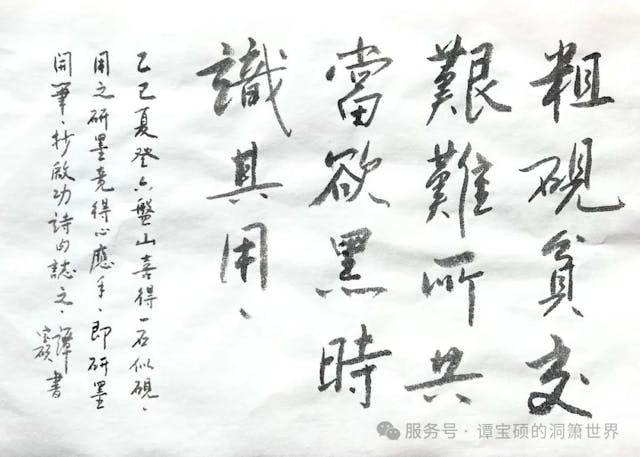 粗硯貧交
艱難所共
當欲黑時
識其用、
乙巳夏登六盤山喜得一石似硯、
用之研墨竟得心應手、即研墨
開筆、抄啟功詩句誌之、譚
寶碩書
服务号·谭宝硕的洞箫世界